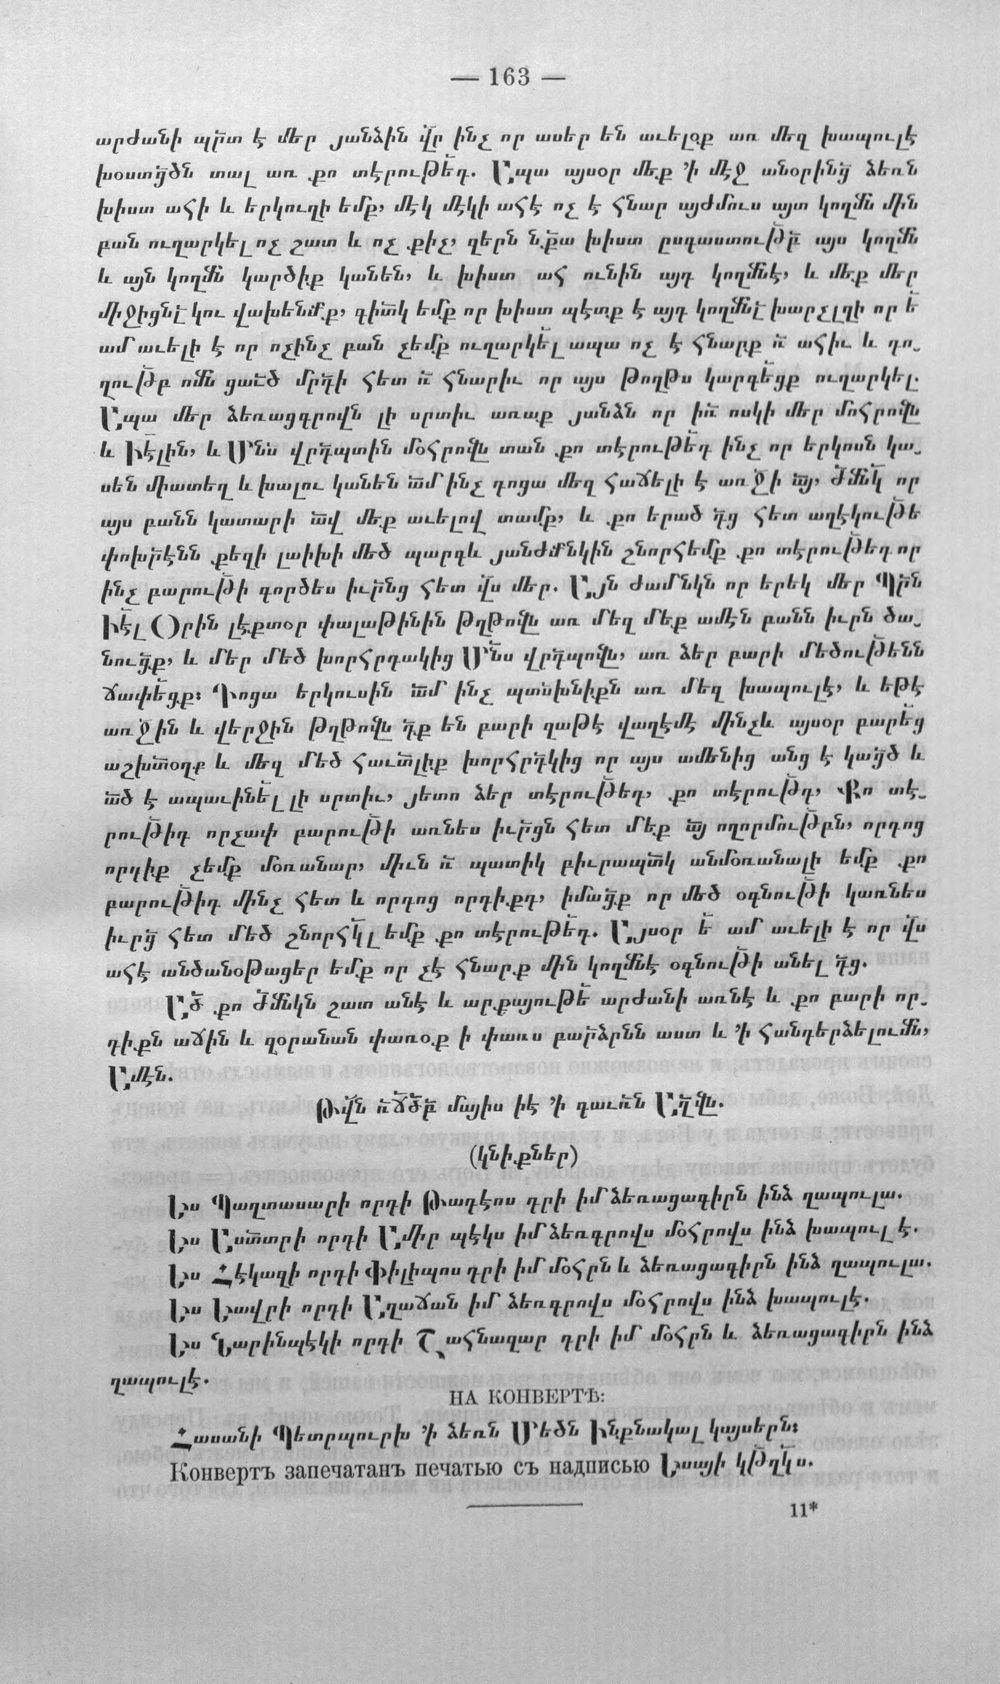 — 163 —
արժանի պր̃տ է մեր յանձին վ̃ր ինչ որ ասեր են աւելօք առ մեզ խապուլէ
խօստց̃ծն տալ առ քո տէրութե̃դ. Ապա այսօր մեք ՚ի մէջ անօրինց̃ ձեռն
խիստ ահի և երկուղի եմք, մէկ մէկի ահէ ոչ է հնար այժմուս այտ կողմ̃ն մին
բան ուղարկել ոչ շատ և ոչ քիչ, զերն ն̃քա խիստ ըսդաստութ̃բ այս կողմ̃ն
և այն կողմ̃ն կարծիք կանեն, և խիստ ահ ունին այդ կողմ̃նէ, և մեք մեր
միջիցնէ̃ կու վախենմ̃ք, գիտ̃կ եմք որ խիստ պէտք է այդ կողմ̃նէ խարչլղի որ ե̃
ամ աւելի է որ ոչինչ բան չեմք ուղարկել ապա ոչ է հնարք ռ̃ ահիւ և դո֊
ղութ̃բ ոմ̃ն ցած̃ծ մրդ̃ի հետ ռ̃ հնարիւ որ այս թողթս կարգեցք ուղարկել.
Ապա մեր ձեռացգրովն լի սրտիւ առաք յանձն որ իռ̃ ոսկի մեր մոհրովն̃
և Իէ̃լին, և Մն̃ս վրդ̃պտին մօհրովն̃ տան քո տէրութե̃դ ինչ որ երկոսն կա֊
սեն միատեղ և խալու կանեն ա̃մ ինչ դոցա մեզ հաճելի է առջ̃ի ա̃յ, Ժմ̃նկ որ
այս բանն կատարի ա̃վ մեք աւելով տամք, և քո երած դ̃ց հետ աղէկութե̃
փոխր̃էնն քեզի լաիխի մեծ պարգև յանժմ̃նկին շնորհեմք քո տէրութե̃դ որ
ինչ բարութ̃ի գործես իւր̃նց հետ վ̃ս մեր. Այն ժամնկն որ երեկ մեր Պր̃ն
Իէ̃լ Օրին լէքտօր փալաթինին թղթովն̃ առ մեզ մեք ամէն բանն իւրն ծա֊
նուց̃ք, և մեր մեծ խորհրդակից Մն̃ս վրդ̃պովն̃, առ ձեր բարի մեծութե̃նն
ճափեցք։ Դոցա երկուսին ա̃մ ինչ պտս̃խնիքն առ մեզ խապուլէ, և եթէ
առջ̃ին և վերջին թղթովն̃ դ̃ք են բարի ղաթէ վաղէմէ մինչև այսօր բարե̃ց
աշխտ̃օղք և մեզ մեծ հաւտ̃լիք խորհրդ̃կից որ այս ամենից անց է կաց̃ծ և
ա̃ծ է ապաւինել լի սրտիւ, յետո ձեր տէրութե̃դ, քո տէրութ̃դ, Քո տէ֊
րութ̃իդ որչափ բարութ̃ի առնես իւր̃ցն հետ մեք ա̃յ ողորմութ̃ըն, որդոց
որդիք չեմք մօռանար, միւն ռ̃ պատիկ բիւրապտ̃կ անմօռանալի եմք քո
բարութ̃իդ մինչ հետ և որդոց որդիքդ, իմաց̃ք որ մեծ օգնութ̃ի կառնես
իւրց̃ հետ մեծ շնորհկ̃լ եմք քո տէրութե̃դ. Այսօր ե̃ ամ աւելի է որ վ̃ս
ահէ անծանօթացեր եմք որ չէ հնարք մին կողմ̃նէ օգնութ̃ի անել դ̃ց.
Ած̃ քո Ժմ̃նկն շատ անէ և արքայութե̃ արժանի առնէ և քո բարի որ֊
դիքն աճին և զօրանան փառօք ի փառս բար̃ձրնն աստ և ՚ի հանդերձելումն̃,
Ամէն.
Թվ̃ն ռ̃ճծ̃բ մայիս իէ ՚ի դաւռն Աղ̃վն̃.
(կնիքներ)
Ես Պաղտասարի որդի Թադէոս դրի իմ ձեռացագիրն ինձ ղապուլա.
Ես Աստ̃տրի որդի Ամիր պէկս իմ ձեռգրովս մօհրովս ինձ խապուլ է.
Ես Հէկազի որդի Փիլիպոս դրի իմ մօհրն և ձեռացագիրն ինձ ղապուլա.
Ես Եավրի որդի Աղաճան իմ ձեռգրովս մօհրովս ինձ խապուլէ.
Ես Նարինպէկի որդի Շահնազար դրի իմ մօհրն և ձեռացագիրն ինձ
ղապուլէ.
НА КОНВЕРТѢ:
Հասանի Պետրպուրխ ՚ի ձեռն Մեծն Ինքնակալ կայսերն։
Конвертъ запечатанъ печатью съ надписью Եսայի կթ̃ղկ̃ս.
11*